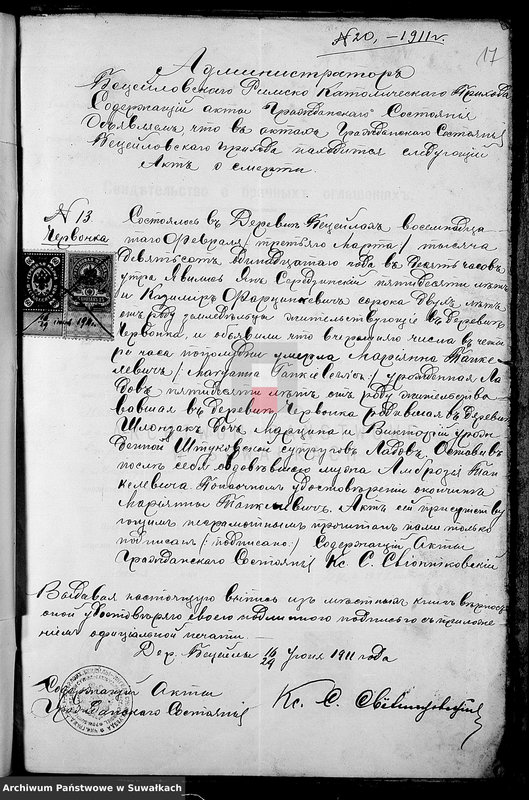 № 20, – 1911 г.
17
Администраторъ
Бецейловскаго Римско Католическаго Прихода
Содержащій акты Гражданскаго Состоянія
Объявляетъ что въ актахъ Гражданскаго Состоянія
Бецейловскаго прихода находится следующій
Актъ о смерти.
№ 13
Червонка
Состоялось въ Деревнѣ Бецейлахъ восемнадца-
таго Февраля / третьяго Марта / тысяча
девятьсотъ одинадцатаго года въ десять часовъ
утра. Явились Янъ пятидесяти лѣтъ
и Казимиръ Фарцинкевичъ сорока двухъ лѣтъ
отъ роду земледѣльцы жительствующіе въ деревнѣ
Червонка, и объявили что вчерашняго числа въ четы
ре часа пополудни умерла Марьянна Пан
кевичъ урожденная Ла
бовъ пятидесяти лѣтъ отъ роду жительство
вавшая въ деревнѣ Червонка родившаяся въ деревнѣ
дочь Марцина и Викторіи урож
денной супруговъ Лабовъ. Оставивъ
послѣ себя овдовѣвшаго мужа Амброзія
кевича. По наочномъ удостовѣреніи о кончинѣ
Марьянны. Актъ сей присутству
ющимъ неграмотнымъ прочитанъ нами только
подписанъ /: подписано :/ Содержащій Акты
Гражданскаго Состоянія Кс. С.
Выдавая настоящую выпись изъ мѣстныхъ книгъ вѣрность
оной удостовѣряю своею подлинною подписью съ приложе
ніемъ официальной печати.
Дер. Бецейлы 16/29 Іюня 1911 года
Содержащій Акты
Гражданскаго Состоянія
Кс. С.
Archiwum Państwowe w Suwałkach